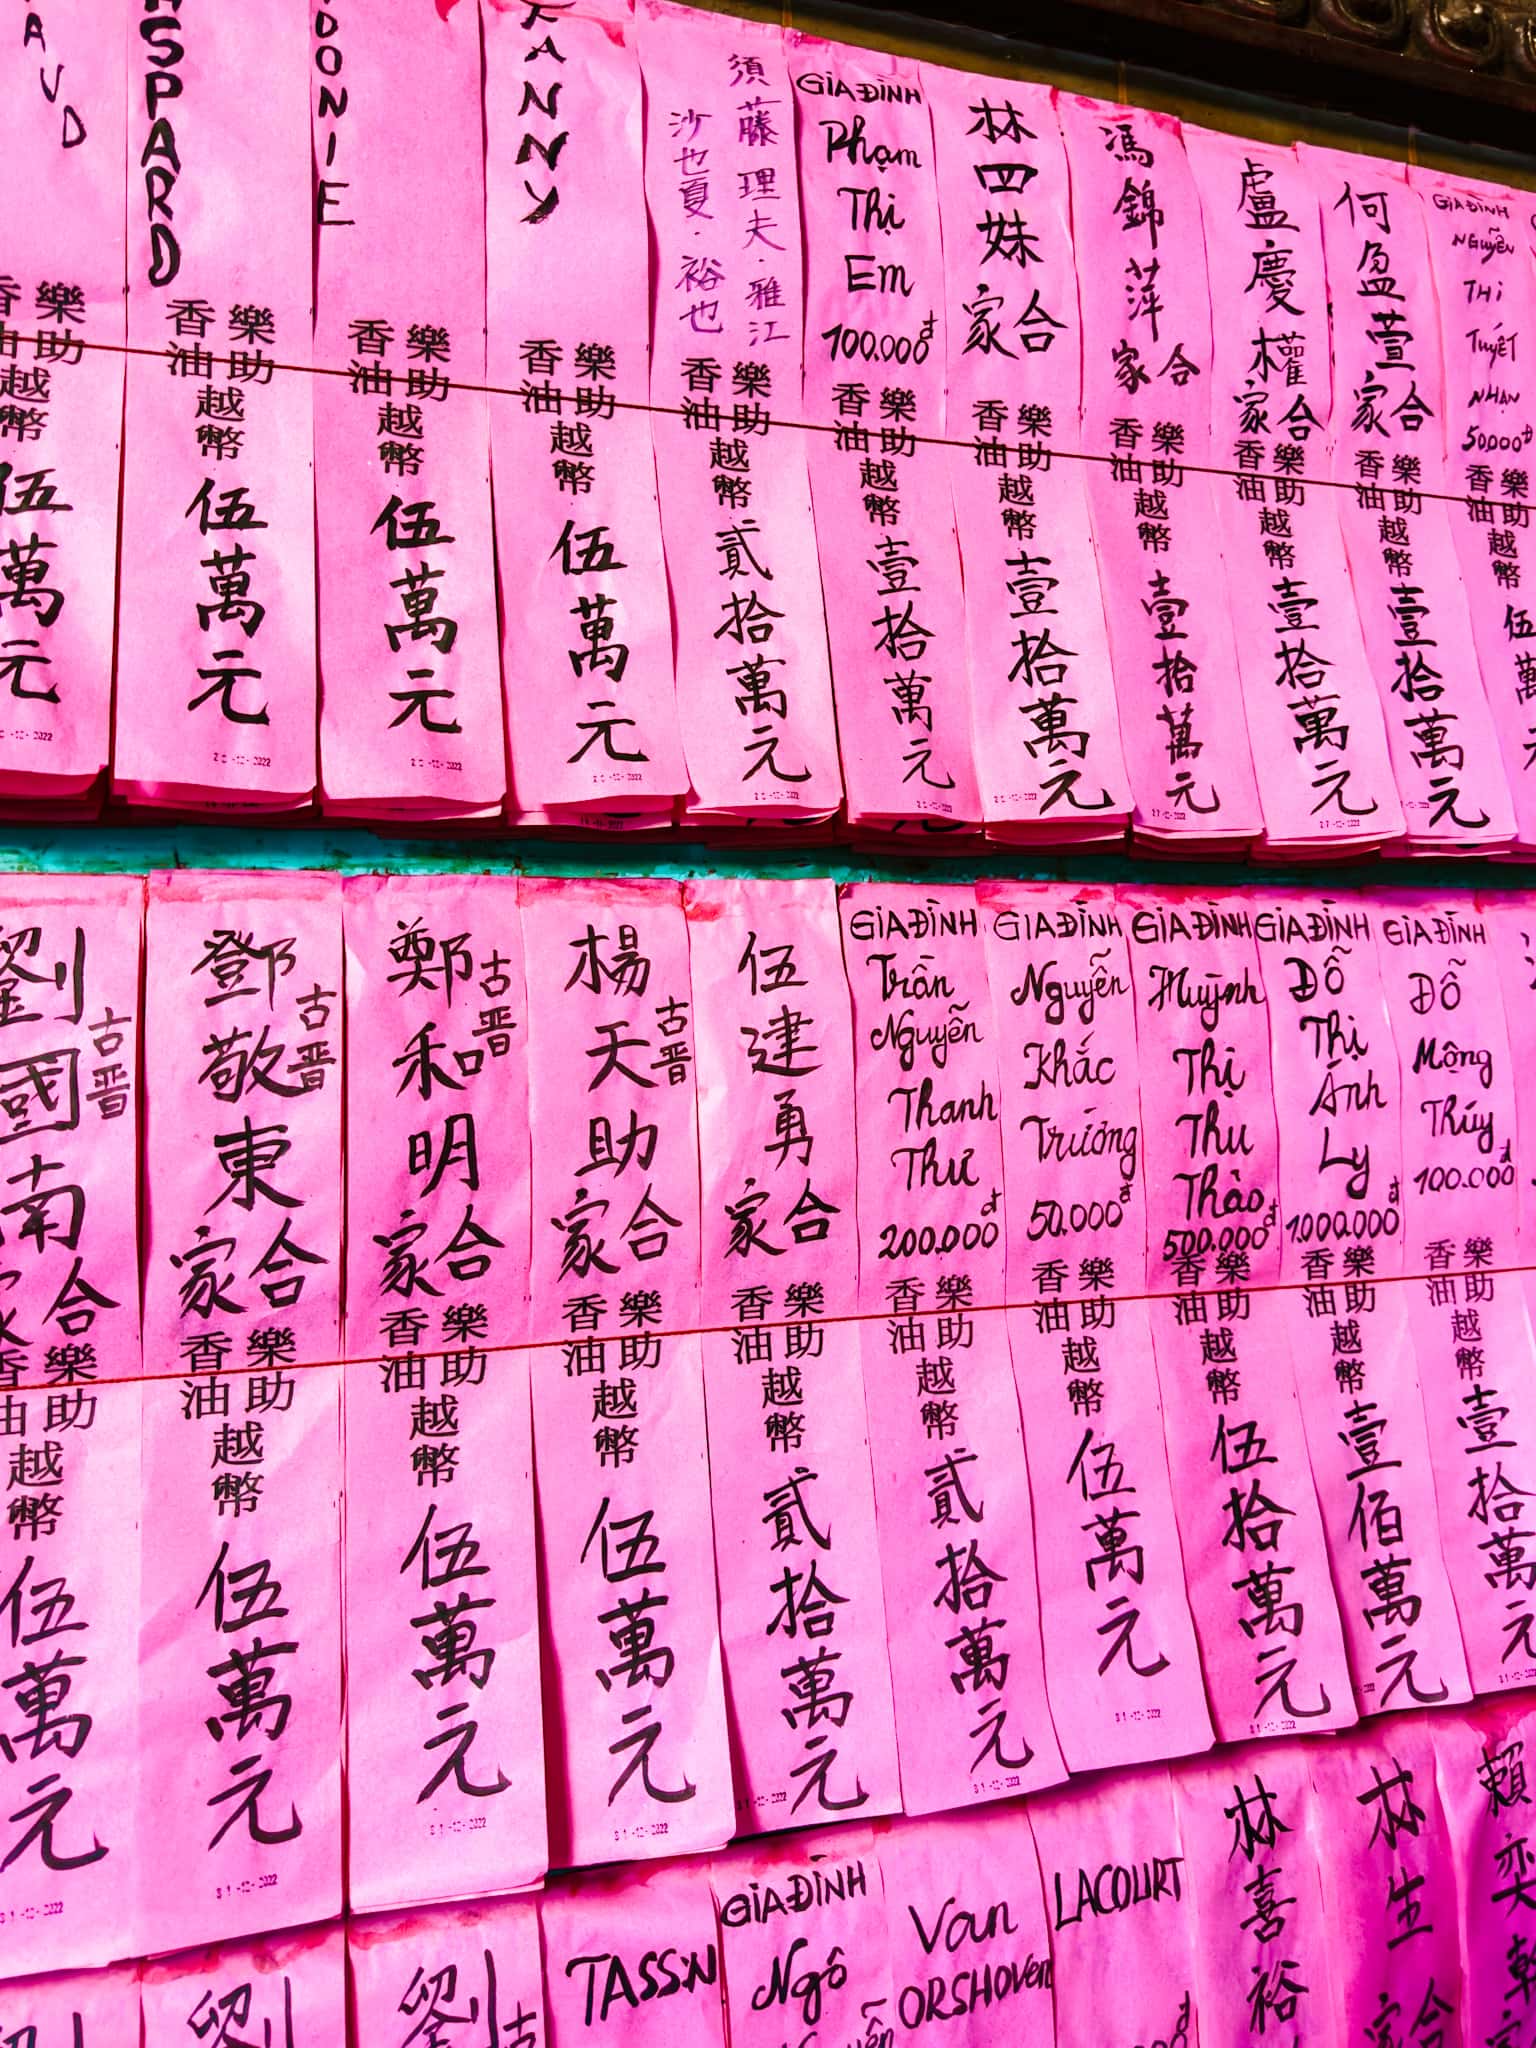 AUD
ASPARD
DONIE
FANNY
須藤理夫・雅江
沙也夏・裕也
GIA ĐÌNH
Phạm
Thị
Em
100.000đ
林四妹
合家
馮錦萍
合家
盧慶權
合家
何盈萱
合家
GIA ĐÌNH
NGUYỄN
THỊ
TUYẾT
NHẠN
50.000đ
樂助
香油
越幣
伍萬元
樂助
香油
越幣
伍萬元
樂助
香油
越幣
伍萬元
樂助
香油
越幣
伍萬元
樂助
香油
越幣
貳拾萬元
樂助
香油
越幣
壹拾萬元
樂助
香油
越幣
壹拾萬元
樂助
香油
越幣
壹拾萬元
樂助
香油
越幣
壹拾萬元
樂助
香油
越幣
壹拾萬元
樂助
香油
越幣
伍萬元
劉國南
古晋
合家
鄧敬東
古晋
合家
鄭和明
古晋
合家
楊天助
古晋
合家
伍建勇
合家
GIA ĐÌNH
Trần
Nguyễn
Thanh
Thư
200.000đ
GIA ĐÌNH
Nguyễn
Khắc
Trường
50.000đ
GIA ĐÌNH
Huỳnh
Thị
Thu
Thảo
500.000đ
GIA ĐÌNH
Đỗ
Thị
Ánh
Ly
1.000.000đ
GIA ĐÌNH
Đỗ
Mộng
Thúy
100.000đ
樂助
香油
越幣
伍萬元
樂助
香油
越幣
伍萬元
樂助
香油
越幣
伍萬元
樂助
香油
越幣
伍萬元
樂助
香油
越幣
貳拾萬元
樂助
香油
越幣
貳拾萬元
樂助
香油
越幣
伍萬元
樂助
香油
越幣
伍拾萬元
樂助
香油
越幣
壹佰萬元
樂助
香油
越幣
壹拾萬元
劉
劉
古
TASSIN
GIA ĐÌNH
Ngô
Nguyễn
Van
ORSHOVEN
LACOURT
林喜裕
林生
合家
賴奕乾